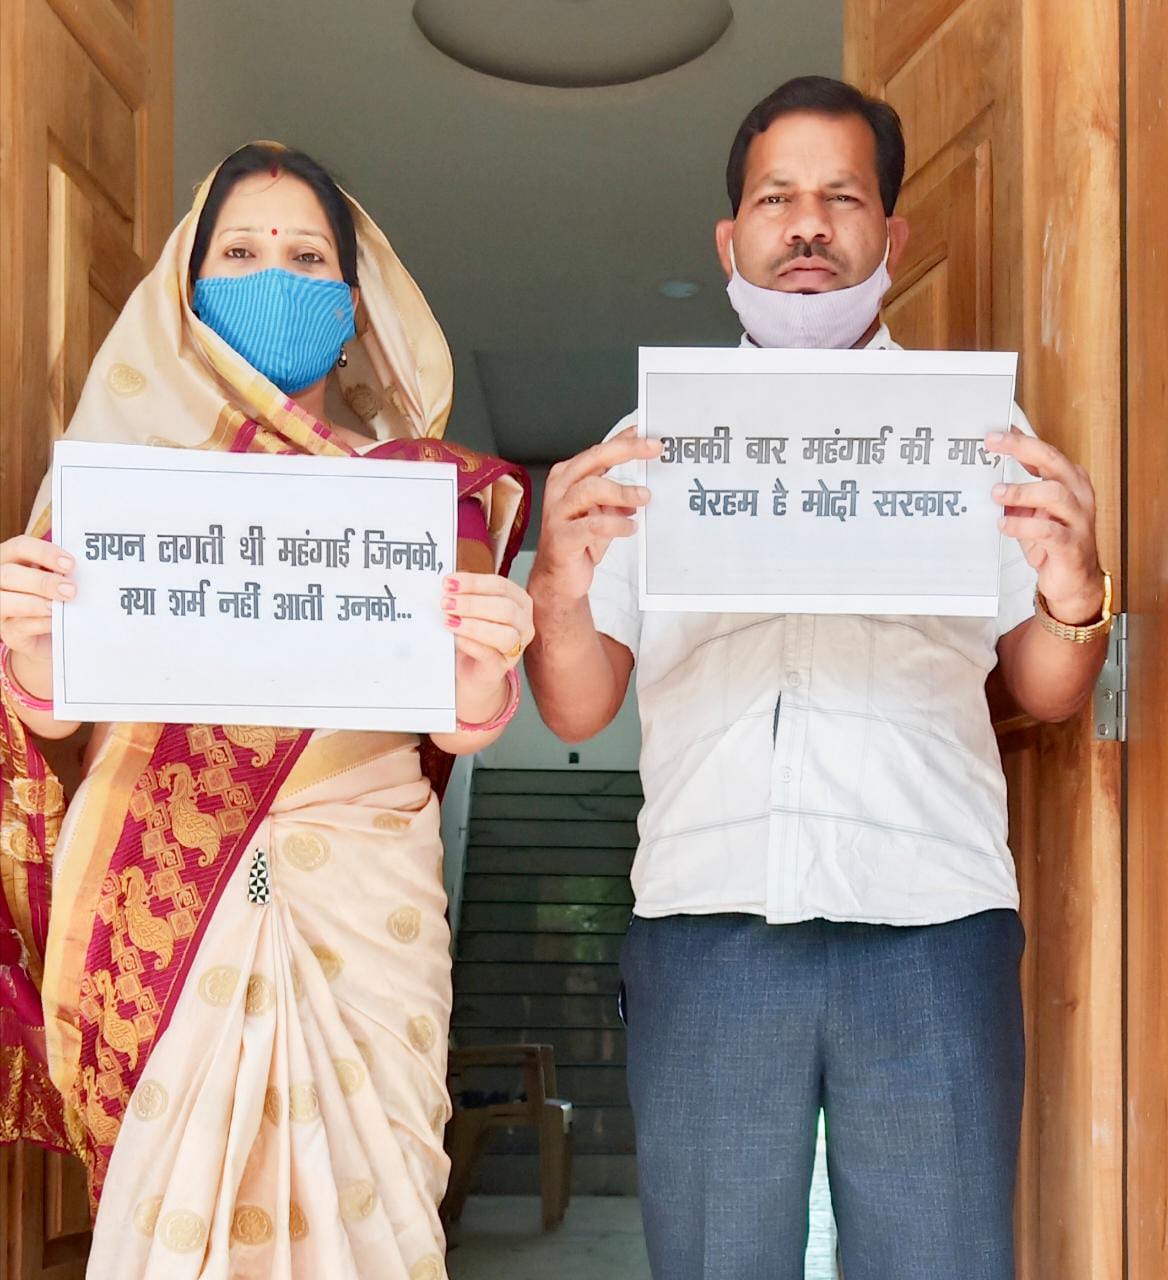 डायन लगती थी महंगाई जिनको,
क्या शर्म नहीं आती उनको...
अबकी बार महंगाई की मार,
बेरहम है मोदी सरकार.